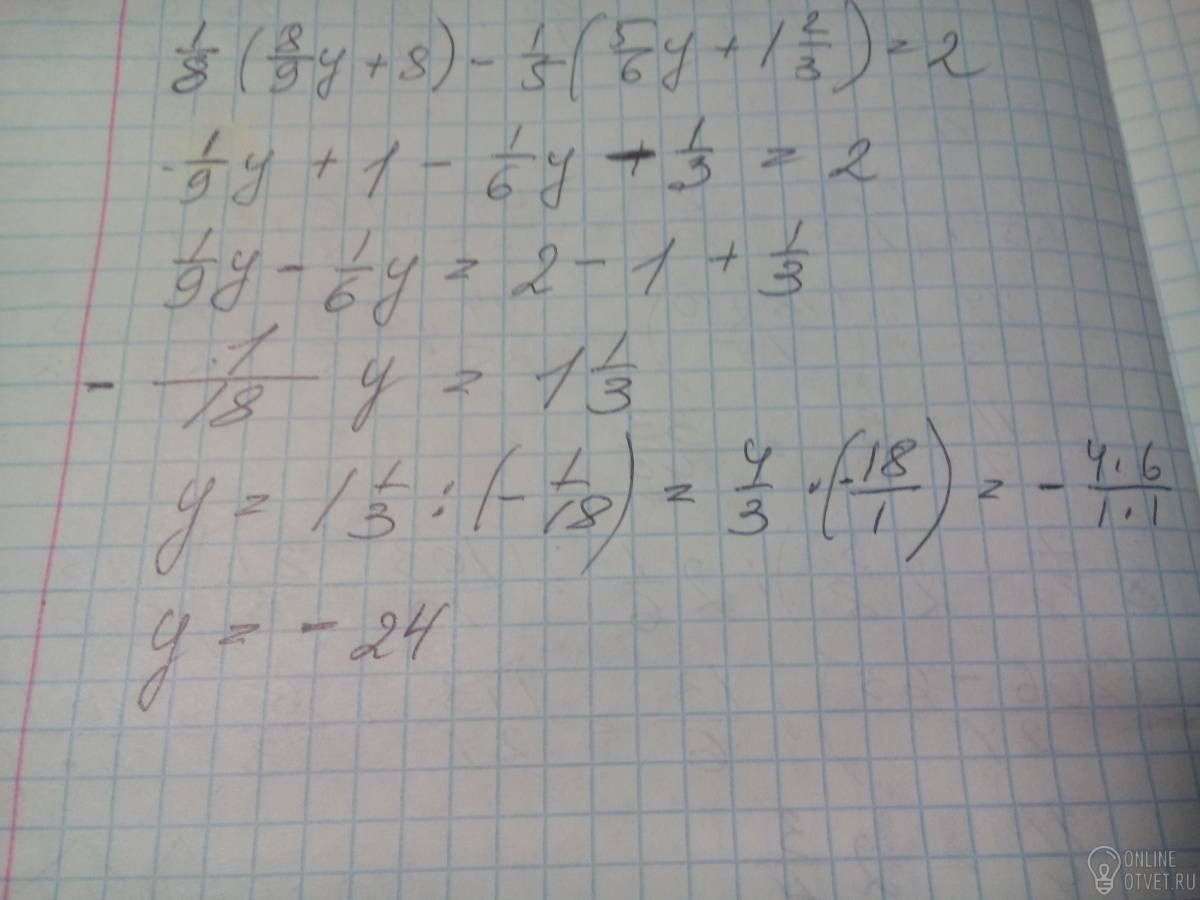 1/8 (8/9 y + 8) - 1/5 (5/6 y + 1 2/3) = 2
1/9 y + 1 - 1/6 y - 1/3 = 2
1/9 y - 1/6 y = 2 - 1 + 1/3
- 1/18 y = 1 1/3
y = 1 1/3 : (- 1/18) = 4/3 · (- 18/1) = - 4·6/1·1
y = - 24
ONLINE
OTVET.RU